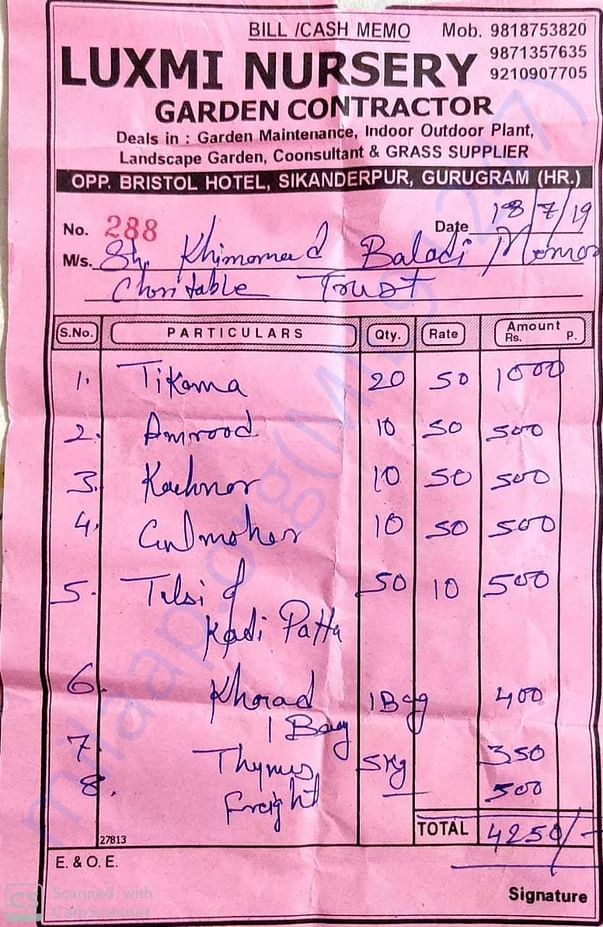 BILL /CASH MEMO Mob. 9818753820
9871357635
LUXMI NURSERY 9210907705
GARDEN CONTRACTOR
Deals in : Garden Maintenance, Indoor Outdoor Plant,
Landscape Garden, Coonsultant & GRASS SUPPLIER
OPP. BRISTOL HOTEL, SIKANDERPUR, GURUGRAM (HR.)
No. 288 Date 18/7/19
M/s. Sh. Khimomad Baladi Memor
Charitable Trust
S.No. PARTICULARS Qty. Rate Amount
Rs. P.
1. Tikoma 20 50 1000
2. Amrood 10 50 500
3. Kachnar 10 50 500
4. Gulmohar 10 50 500
5. Tulsi & 50 10 500
Kadi Patta
6. Khorad 1 Bag 400
1 Bag
7. Thymus 5 Kg 350
8. Freight — 500
TOTAL 4250/-
27813
E. & O. E.
Signature
milaap.org
CS Scanned with
CamScanner